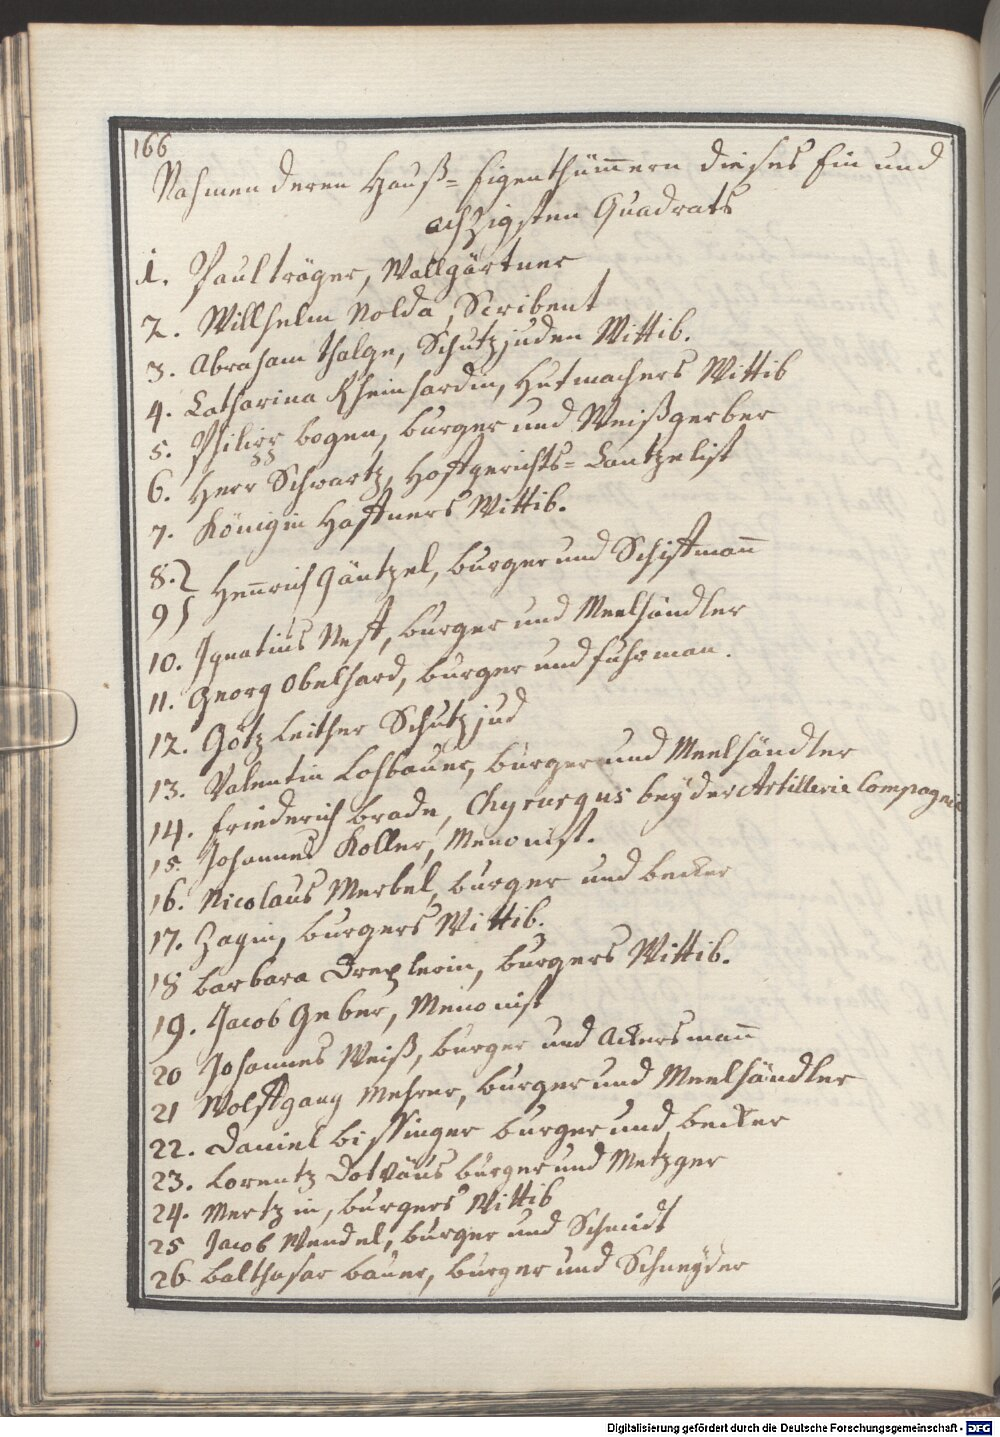 166
Nahmen deren Hauß= Eigenthümern dieses Ein und
achzigsten Quadrats
1. Paul träger, Wallgärtner
2. Willhelm Nolda, Scribent
3. Abraham thalge, Schutzjuden Wittib.
4. Catharina Rheinhardin, Hutmachers Wittib
5. Philipp bogen, burger und Weißgerber
6. Herr Schwartz, Hoffgerichts= Cantzelist
7. Königin Haffners Wittib.
8. Henrich Gäntzel, burger und Schiffmann
9
10. Ignatius Neff, burger und Meelhändler
11. Georg Obelhard, burger und fuhrman.
12. Götz Leither Schutzjud
13. Valentin Lohbauer, burger und Meelhändler
14. friederich brade, Chyrurgus bey der Artillerie Compagnie
15. Johannes Koller, Menonist.
16. Nicolaus Merbel, burger und becker
17. Zagin, burgers Wittib.
18 barbara Drexlerin, burgers Wittib.
19. Jacob Geber, Menonist
20 Johannes Weiß, burger und Ackersmann
21 Wolffgang Mehrer, burger und Meelhändler
22. Daniel bissinger burger und becker
23. Lorentz burger und Metzger
24. Mertzin, burgers Wittib
25 Jacob Wendel, burger und Schmidt
26 balthasar bauer, burger und Schneyder
Digitalisierung gefördert durch die Deutsche Forschungsgemeinschaft - DFG